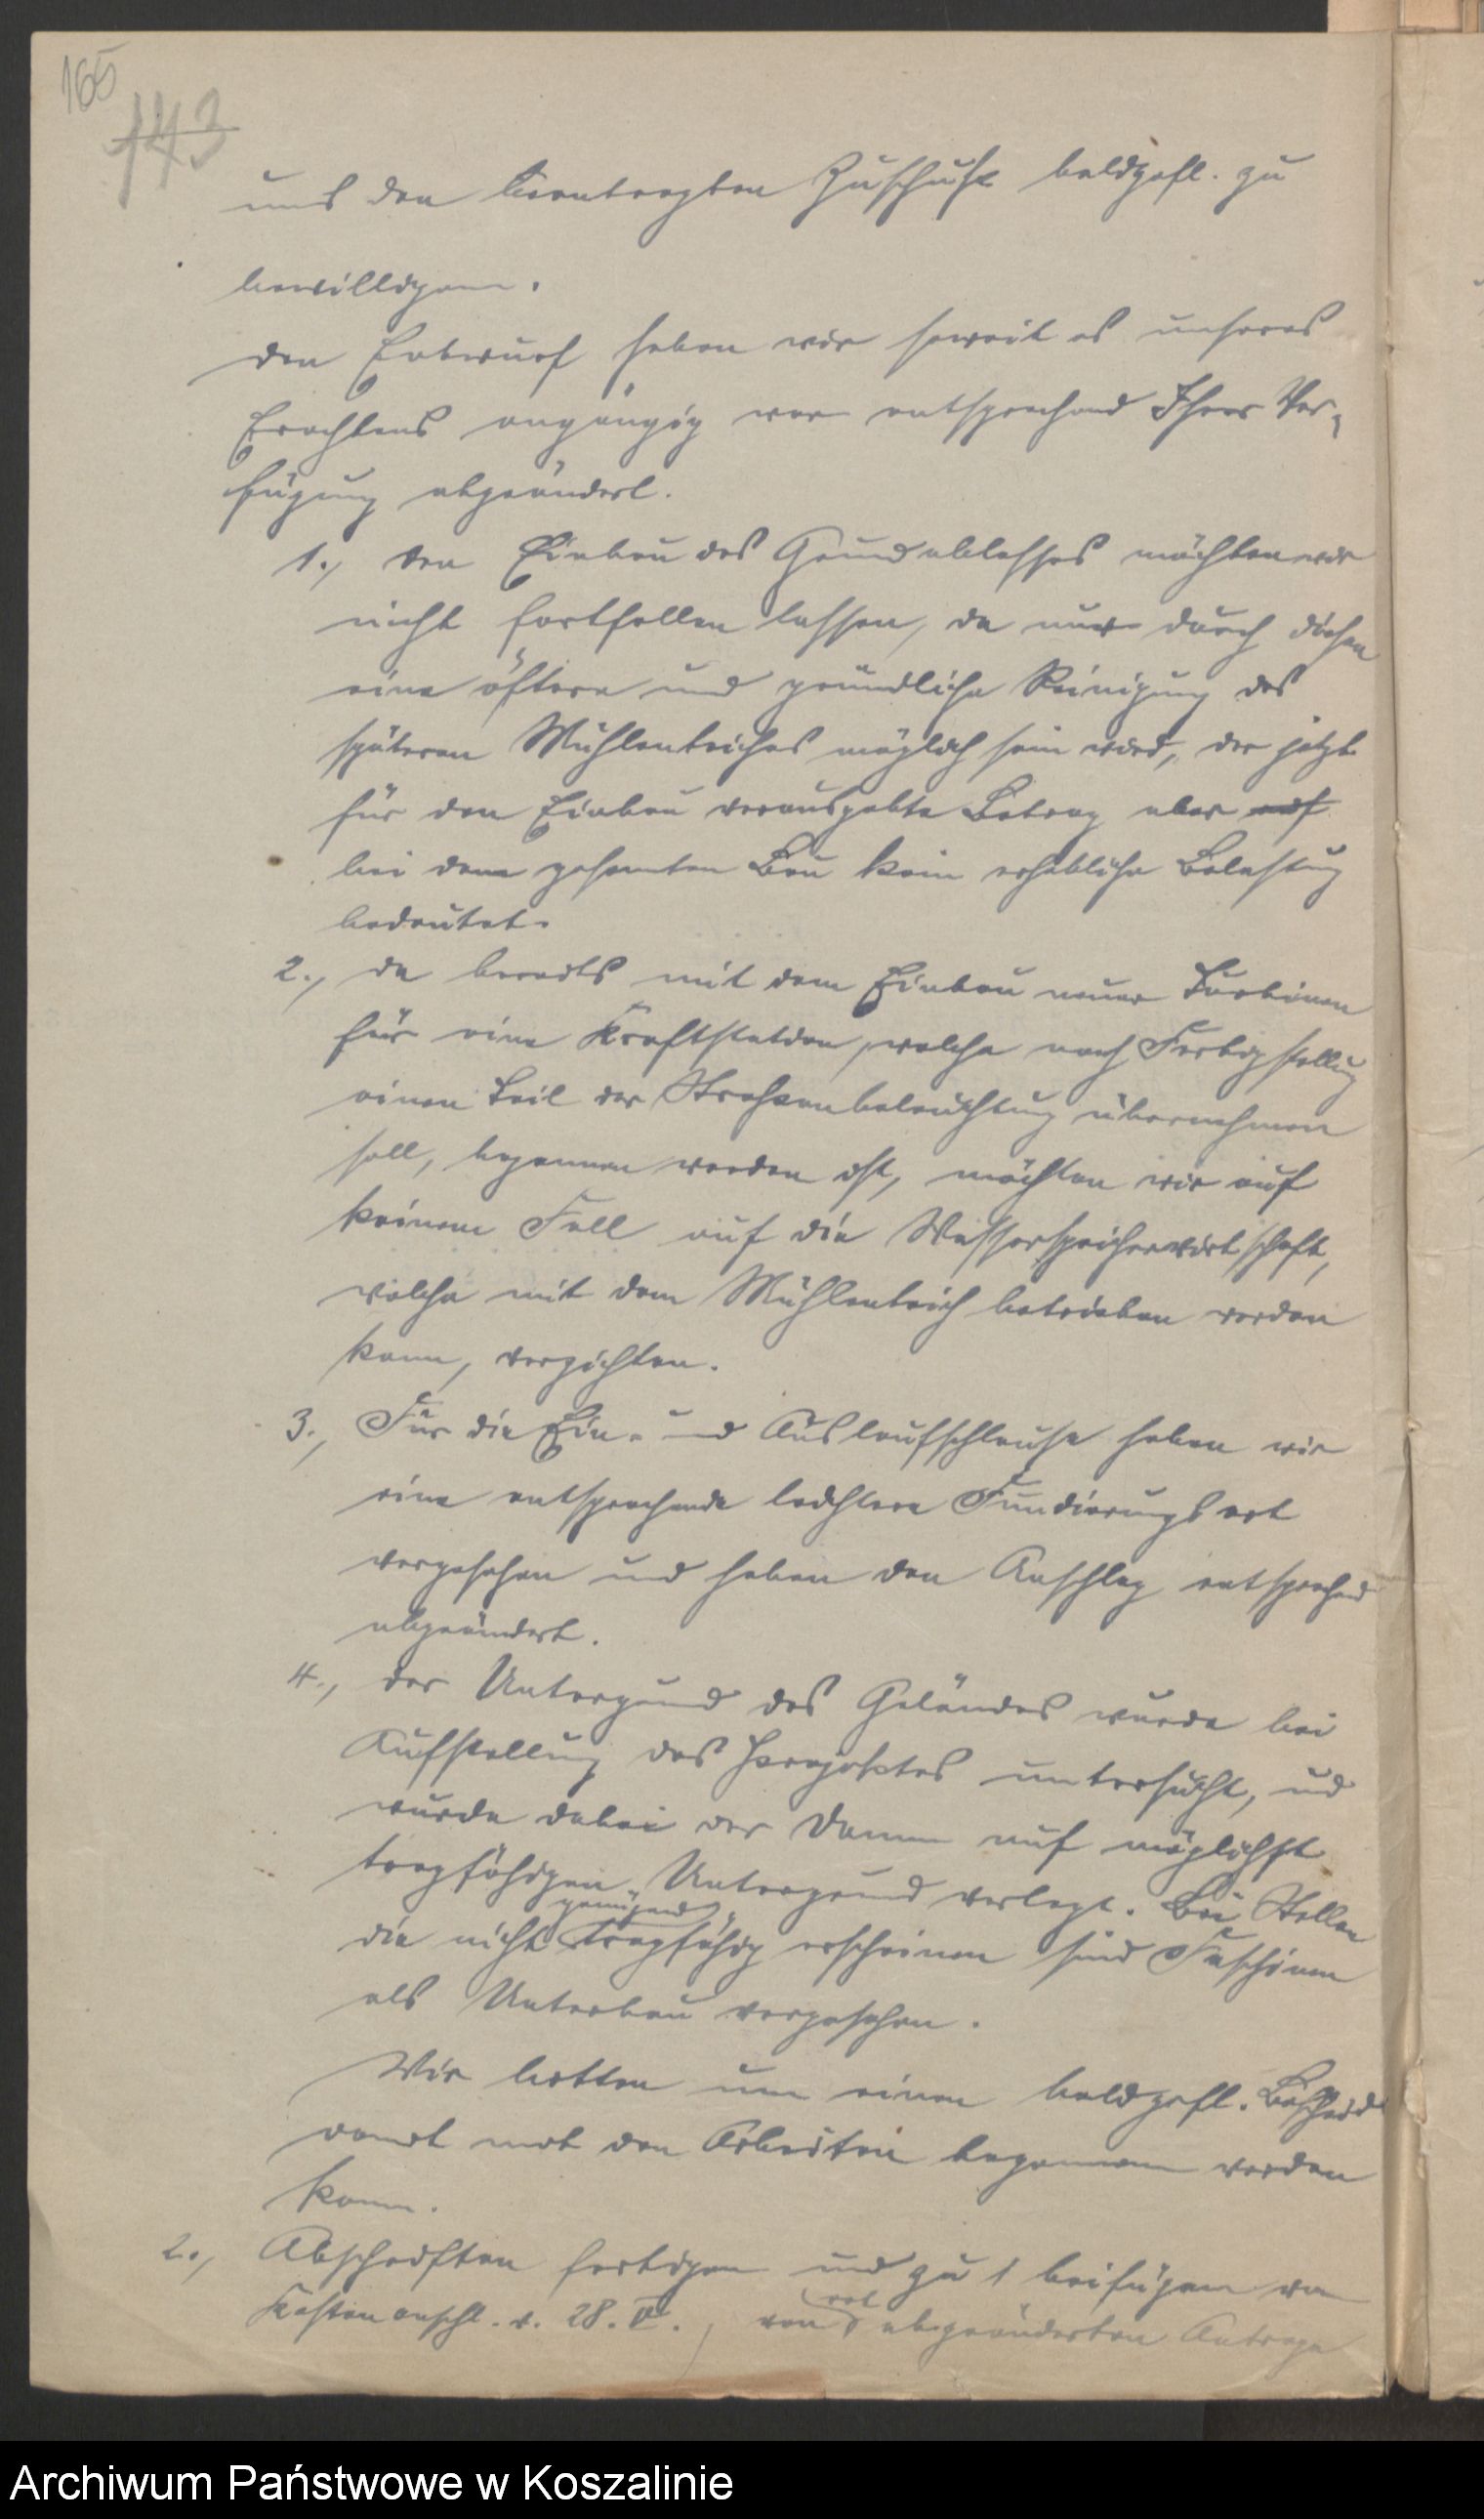 165
143
uns den beantragten Zuschuß baldgefl. zu
bewilligen.
Den Entwurf haben wir soweit es unseres
Erachtens angängig war entsprechend Ihrer Ver-
fügung abgeändert.
1., Den Einbau des Grundablasses möchten wir
nicht fortfallen lassen, da nur durch diesen
eine öftere und gründliche Reinigung des
späteren Mühlenteiches möglich sein wird, der jetzt
für den Einbau verausgabte Betrag aber auf
bei dem gesamten Bau kein erhebliche Belastung
bedeutet.
2., Da bereits mit dem Einbau neuer Turbinen
für eine Kraftstation, welche nach Fertigstellung
einen Teil der Straßenbeleuchtung übernehmen
soll, begonnen worden ist, möchten wir auf
keinem Fall auf die Wasserspeicherwirtschaft,
welche mit dem Mühlenteich betrieben werden
kann, verzichten.
3., Für die Ein- und Auslaufschleuse haben wir
eine entsprechende leichtere Fundierungsart
vorgesehen und haben den Anschlag entsprechend
abgeändert.
4., Der Untergrund des Geländes wurde bei
Aufstellung des Projektes untersucht, und
wurde dabei der Damm auf möglichst
tragfähigen Untergrund verlegt. Bei Stellen
die nicht genügend tragfähig erscheinen sind Faschinen
als Unterbau vorgesehen.
Wir bitten um einen baldgefl. Bescheid
damit mit den Arbeiten begonnen werden
kann.
2., Abschriften fertigen und zu 1 beifügen von
Kostenanschl. v. 28. V., von rot abgeänderten Antrage